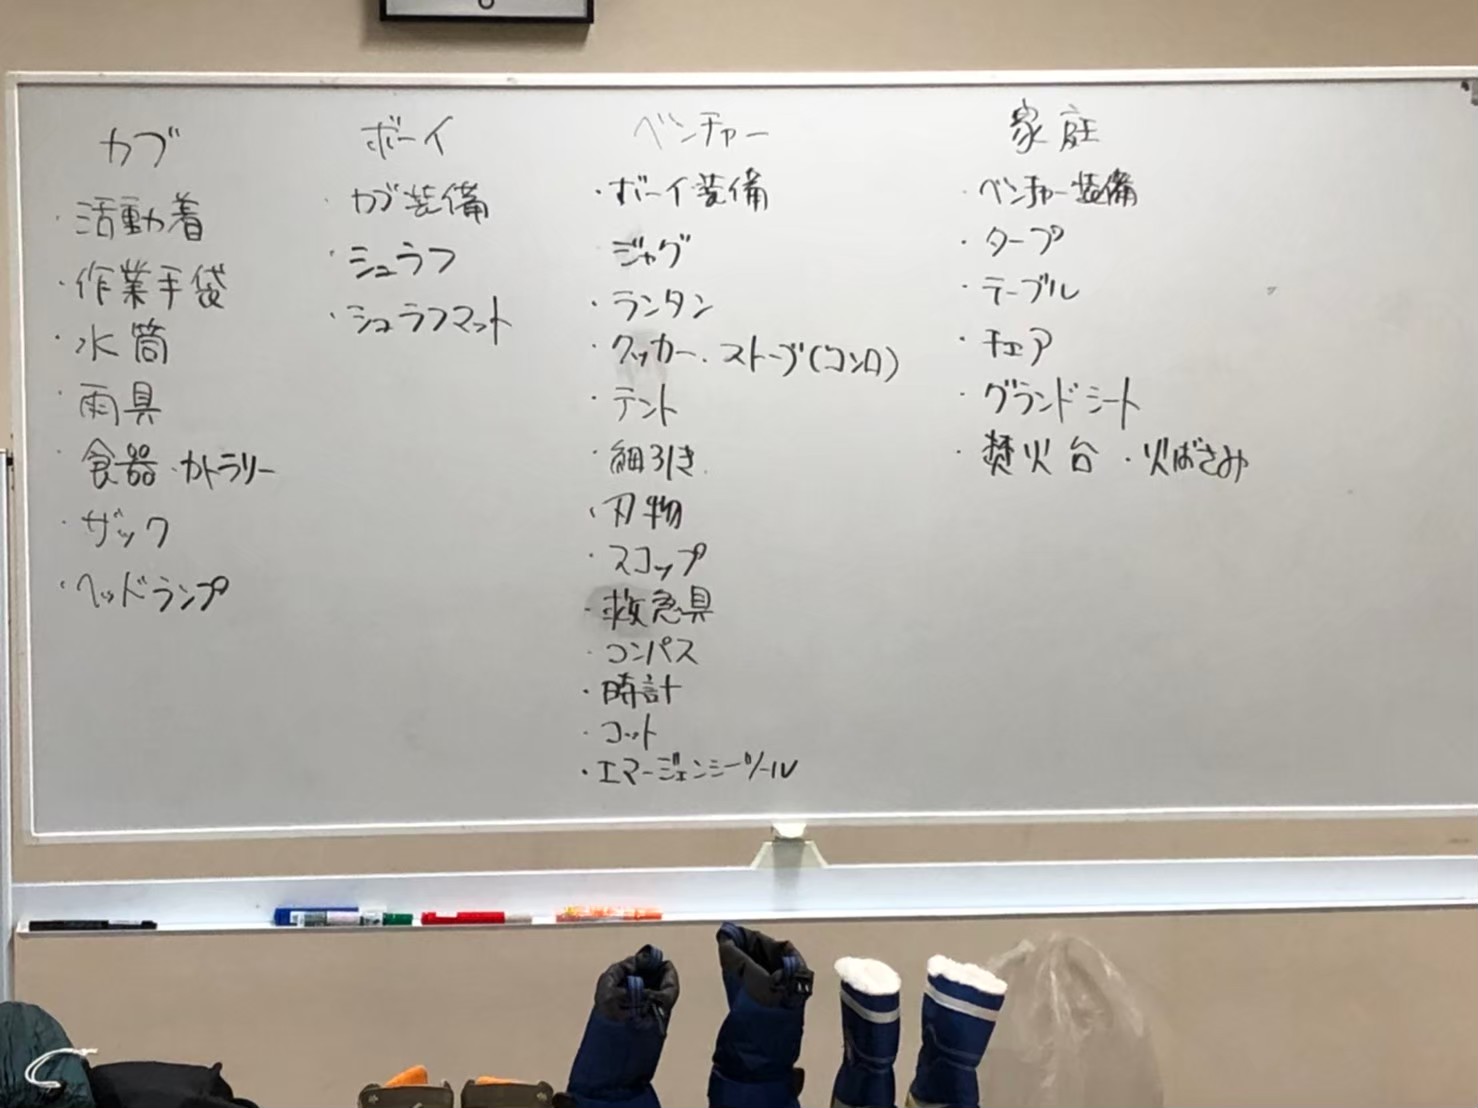 カブ
・活動着
・作業手袋
・水筒
・雨具
・食器・カトラリー
・ザック
・ヘッドランプ
ボーイ
・カブ装備
・シュラフ
・シュラフマット
ベンチャー
・ボーイ装備
・ジャグ
・ランタン
・クッカー・ストーブ(コンロ)
・テント
・細引き
・刃物
・スコップ
・救急具
・コンパス
・時計
・コット
・エマージェンシーツール
家庭
・ベンチャー装備
・タープ
・テーブル
・チェア
・グランドシート
・焚火台・火ばさみ